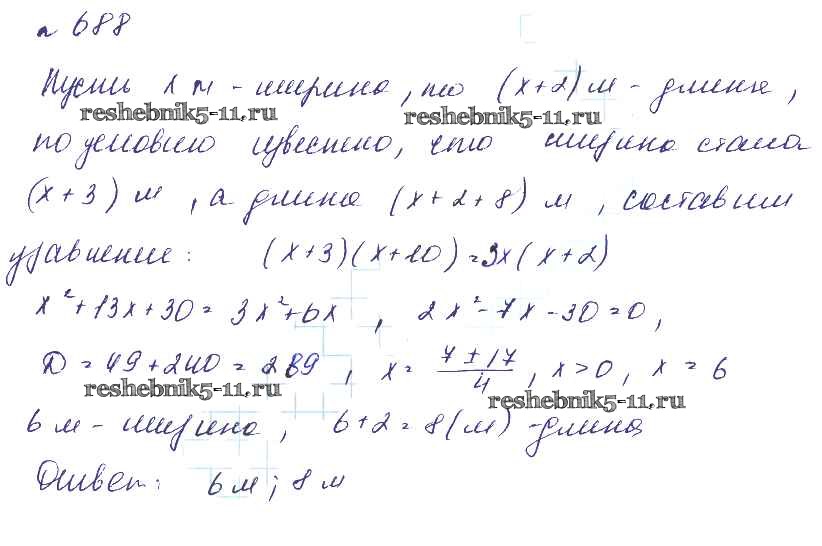 № 688
Пусть х м - ширина, то (х+2) м - длина,
reshebnik5-11.ru reshebnik5-11.ru
по условию известно, что ширина стала
(х+3) м, а длина (х+2+8) м, составим
уравнение: (х+3)(х+10)=3х(х+2)
х²+13х+30= 3х²+6х, 2х²-7х-30=0,
D=49+240=289, х= 7±17/4, х>0, х=6
reshebnik5-11.ru reshebnik5-11.ru
6 м - ширина, 6+2=8(м) - длина
Ответ: 6 м; 8 м